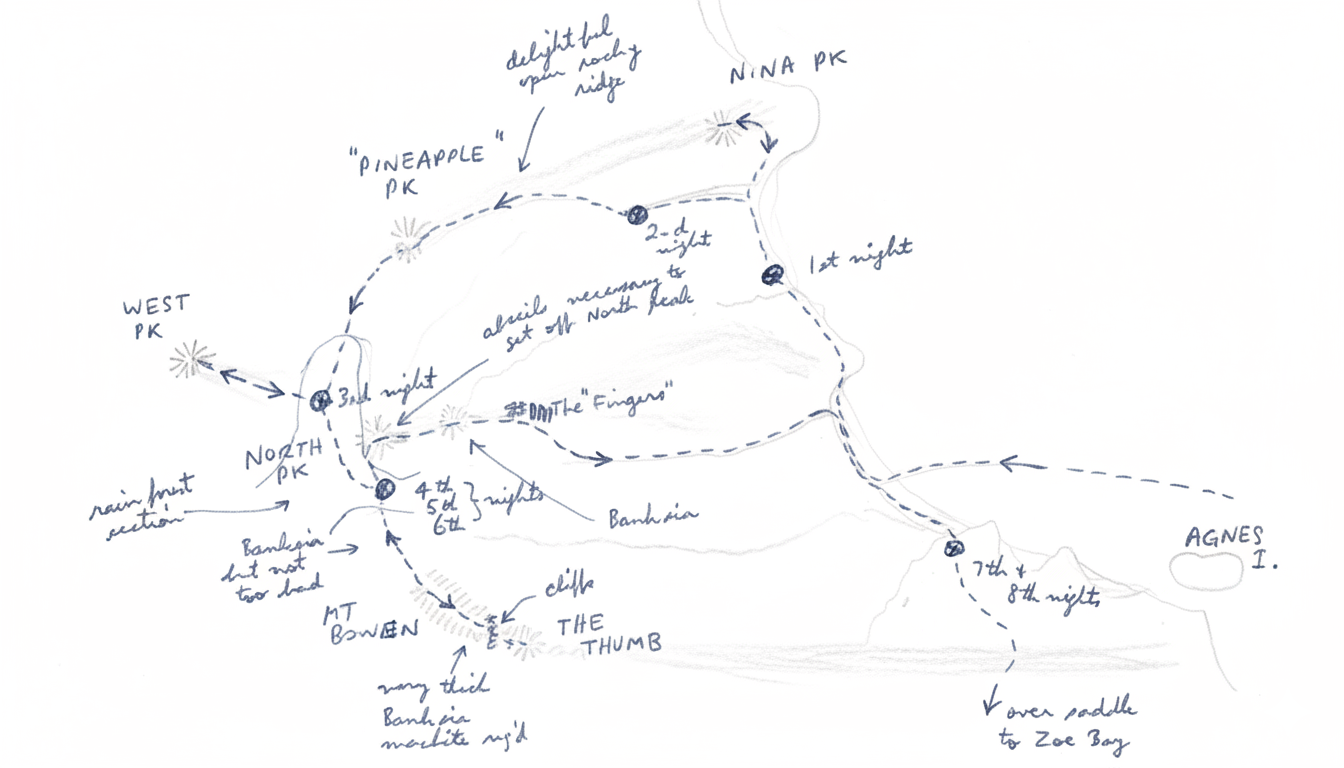 delightful
open rocky
ridge
NINA PK
"PINEAPPLE"
PK
2nd
night
1st night
abseils necessary to
get off North Peak
WEST
PK
3rd night
The "Fingers"
NORTH
PK
rain forest
section
4th
5th
6th
} nights
Banksia
Banksia
but not
too bad
AGNES
I.
7th +
8th nights
cliffs
MT
BOWEN
THE
THUMB
very thick
Banksia
machete req'd
over saddle
to Zoe Bay